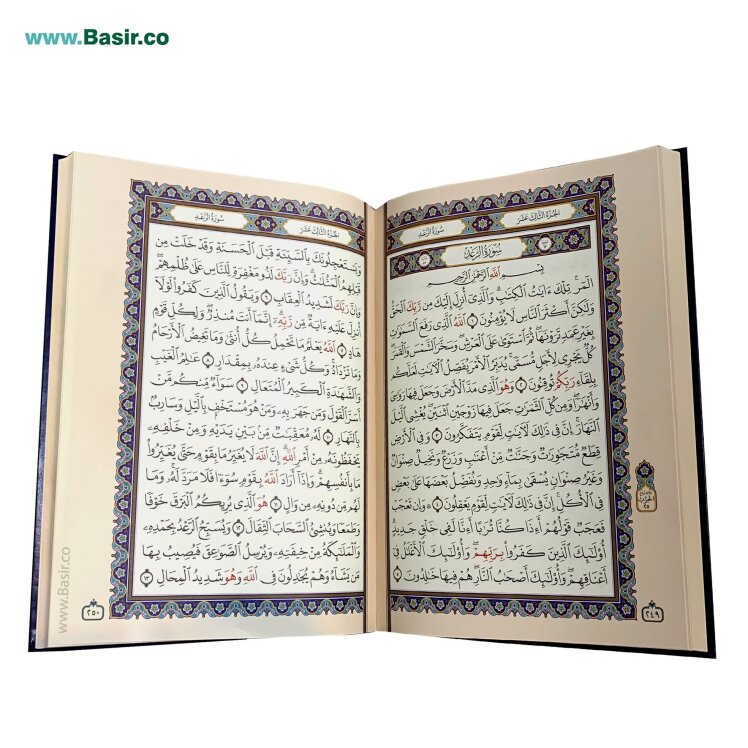 www.Basir.co
الجزء الثالث عشر
سورة الرعد
سُورَةُ الرَّعْدِ
بِسْمِ اللَّهِ الرَّحْمَٰنِ الرَّحِيمِ
الٓمٓرۚ تِلْكَ ءَايَٰتُ ٱلْكِتَٰبِۗ وَٱلَّذِىٓ أُنزِلَ إِلَيْكَ مِن رَّبِّكَ ٱلْحَقُّ
وَلَٰكِنَّ أَكْثَرَ ٱلنَّاسِ لَا يُؤْمِنُونَ ١ ٱللَّهُ ٱلَّذِى رَفَعَ ٱلسَّمَٰوَٰتِ
بِغَيْرِ عَمَدٍ تَرَوْنَهَاۖ ثُمَّ ٱسْتَوَىٰ عَلَى ٱلْعَرْشِۖ وَسَخَّرَ ٱلشَّمْسَ وَٱلْقَمَرَۖ
كُلٌّ يَجْرِى لِأَجَلٍ مُّسَمًّىۚ يُدَبِّرُ ٱلْأَمْرَ يُفَصِّلُ ٱلْءَايَٰتِ لَعَلَّكُم
بِلِقَآءِ رَبِّكُمْ تُوقِنُونَ ٢ وَهُوَ ٱلَّذِى مَدَّ ٱلْأَرْضَ وَجَعَلَ فِيهَا رَوَٰسِىَ
وَأَنْهَٰرًاۖ وَمِن كُلِّ ٱلثَّمَرَٰتِ جَعَلَ فِيهَا زَوْجَيْنِ ٱثْنَيْنِۖ يُغْشِى ٱلَّيْلَ
ٱلنَّهَارَۚ إِنَّ فِى ذَٰلِكَ لَءَايَٰتٍ لِّقَوْمٍ يَتَفَكَّرُونَ ٣ وَفِى ٱلْأَرْضِ
قِطَعٌ مُّتَجَٰوِرَٰتٌ وَجَنَّٰتٌ مِّنْ أَعْنَٰبٍ وَزَرْعٌ وَنَخِيلٌ صِنْوَانٌ
وَغَيْرُ صِنْوَانٍ يُسْقَىٰ بِمَآءٍ وَٰحِدٍ وَنُفَضِّلُ بَعْضَهَا عَلَىٰ بَعْضٍ
فِى ٱلْأُكُلِۚ إِنَّ فِى ذَٰلِكَ لَءَايَٰتٍ لِّقَوْمٍ يَعْقِلُونَ ٤ وَإِن تَعْجَبْ
فَعَجَبٌ قَوْلُهُمْ أَءِذَا كُنَّا تُرَٰبًا أَءِنَّا لَفِى خَلْقٍ جَدِيدٍۗ
أُو۟لَٰٓئِكَ ٱلَّذِينَ كَفَرُوا۟ بِرَبِّهِمْۖ وَأُو۟لَٰٓئِكَ ٱلْأَغْلَٰلُ فِىٓ
أَعْنَاقِهِمْۖ وَأُو۟لَٰٓئِكَ أَصْحَٰبُ ٱلنَّارِۖ هُمْ فِيهَا خَٰلِدُونَ ٥
الحزب
٢٥
٢٤٩
الجزء الثالث عشر
سورة الرعد
وَيَسْتَعْجِلُونَكَ بِٱلسَّيِّئَةِ قَبْلَ ٱلْحَسَنَةِ وَقَدْ خَلَتْ مِن
قَبْلِهِمُ ٱلْمَثُلَٰتُۗ وَإِنَّ رَبَّكَ لَذُو مَغْفِرَةٍ لِّلنَّاسِ عَلَىٰ ظُلْمِهِمْۖ
وَإِنَّ رَبَّكَ لَشَدِيدُ ٱلْعِقَابِ ٦ وَيَقُولُ ٱلَّذِينَ كَفَرُوا۟ لَوْلَآ
أُنزِلَ عَلَيْهِ ءَايَةٌ مِّن رَّبِّهِۦٓۗ إِنَّمَآ أَنتَ مُنذِرٌۖ وَلِكُلِّ قَوْمٍ
هَادٍ ٧ ٱللَّهُ يَعْلَمُ مَا تَحْمِلُ كُلُّ أُنثَىٰ وَمَا تَغِيضُ ٱلْأَرْحَامُ
وَمَا تَزْدَادُۖ وَكُلُّ شَىْءٍ عِندَهُۥ بِمِقْدَارٍ ٨ عَٰلِمُ ٱلْغَيْبِ
وَٱلشَّهَٰدَةِ ٱلْكَبِيرُ ٱلْمُتَعَالِ ٩ سَوَآءٌ مِّنكُم مَّنْ
أَسَرَّ ٱلْقَوْلَ وَمَن جَهَرَ بِهِۦ وَمَنْ هُوَ مُسْتَخْفٍۭ بِٱلَّيْلِ وَسَارِبٌۢ
بِٱلنَّهَارِ ١٠ لَهُۥ مُعَقِّبَٰتٌ مِّنۢ بَيْنِ يَدَيْهِ وَمِنْ خَلْفِهِۦ
يَحْفَظُونَهُۥ مِنْ أَمْرِ ٱللَّهِۗ إِنَّ ٱللَّهَ لَا يُغَيِّرُ مَا بِقَوْمٍ حَتَّىٰ يُغَيِّرُوا۟
مَا بِأَنفُسِهِمْۗ وَإِذَآ أَرَادَ ٱللَّهُ بِقَوْمٍ سُوٓءًا فَلَا مَرَدَّ لَهُۥۚ وَمَا
لَهُم مِّن دُونِهِۦ مِن وَالٍ ١١ هُوَ ٱلَّذِى يُرِيكُمُ ٱلْبَرْقَ خَوْفًا
وَطَمَعًا وَيُنشِئُ ٱلسَّحَابَ ٱلثِّقَالَ ١٢ وَيُسَبِّحُ ٱلرَّعْدُ بِحَمْدِهِۦ
وَٱلْمَلَٰٓئِكَةُ مِنْ خِيفَتِهِۦ وَيُرْسِلُ ٱلصَّوَٰعِقَ فَيُصِيبُ بِهَا
مَن يَشَآءُ وَهُمْ يُجَٰدِلُونَ فِى ٱللَّهِ وَهُوَ شَدِيدُ ٱلْمِحَالِ ١٣
٢٥٠
www.Basir.co